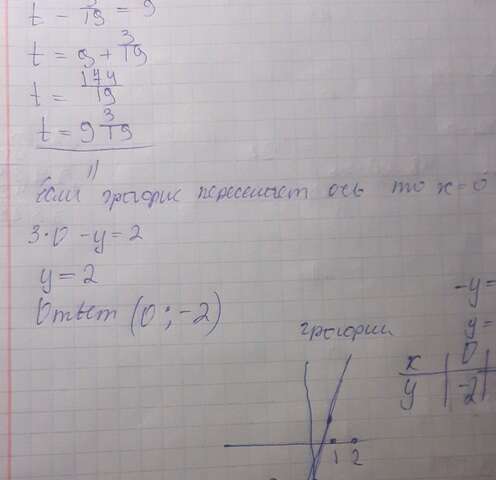 t - 3/19 = 9
t = 9 + 3/19
t = 174/19
t = 9 3/19
1)
Если график пересекает ось то x = 0
3·0 - y = 2
y = 2
Ответ (0 ; -2)
-y =
график
y =
x 0
y -2
1 2